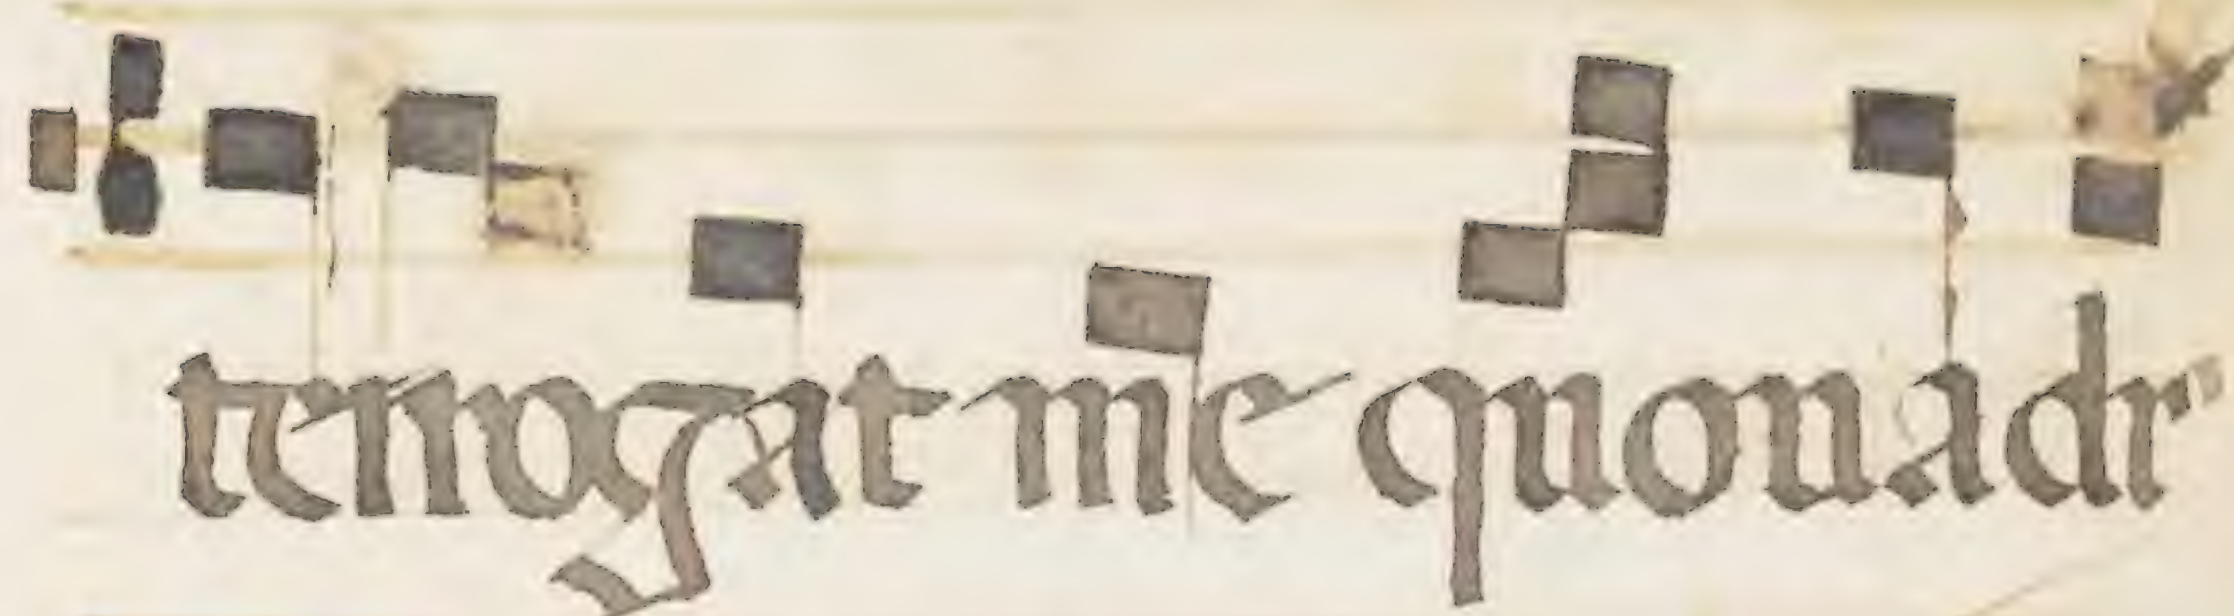 terrogat me quo uadi